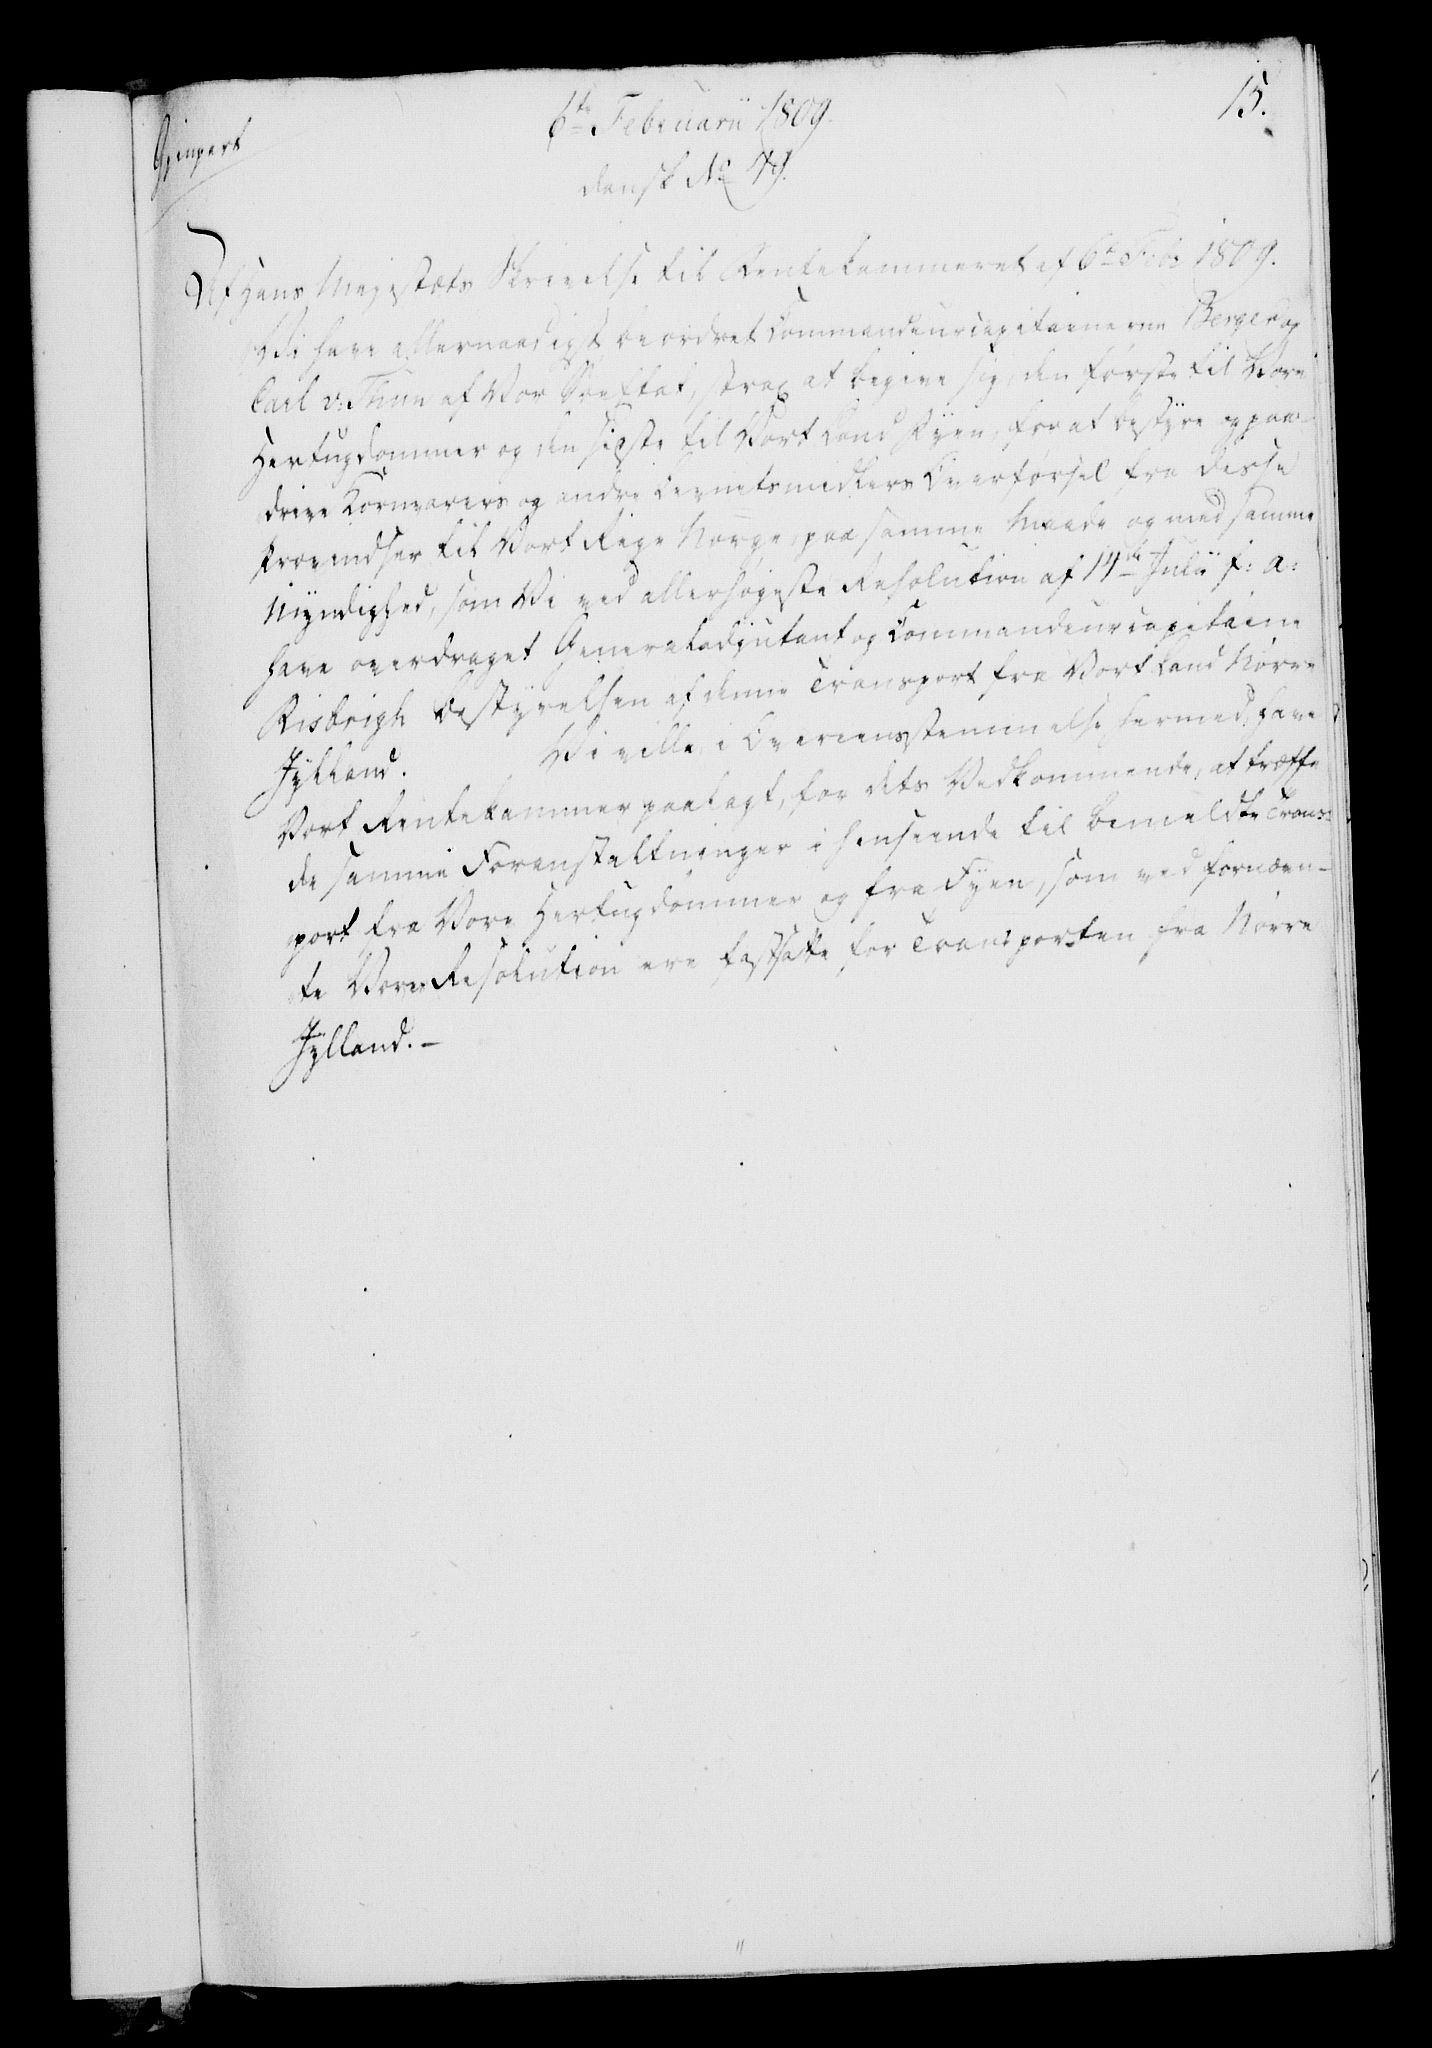 15.
6te Februarii 1809.
dansk No 49.
Gienpart
Af Hans Majestæts Skrivelse til Rentekammeret af 6te Febr 1809.
Vi have allernaadigst beordret Commandeurcapitainerne Berger og
Carl v. Thun af Vor Søeetat, strax at begive sig, den første til Vore
Hertugdømmer og den sidste til Vort Land Fyen, for at bestyre og paa-
drive Kornvarers og andre Levnetsmidlers Overførsel fra disse
Provindser til Vort Rige Norge, paa samme Maade og med samme
Myndighed, som Vi ved allerhøjeste Resolution af 14de Julii f: a:
have overdraget Generaladjutant og Commandeurcapitaine
Risbrigh Bestyrelsen af denne Transport fra Vort Land Nørre
Jylland. Vi ville, i Overeensstemmelse hermed, have
Vort Rentekammer paalagt, for dets Vedkommende, at træffe
de samme Foranstaltninger i Henseende til bemeldte Trans-
port fra Vore Hertugdømmer og fra Fyen, som ved fornævn-
te Vores Resolution ere fastsatte for Transporten fra Nørre
Jylland. -